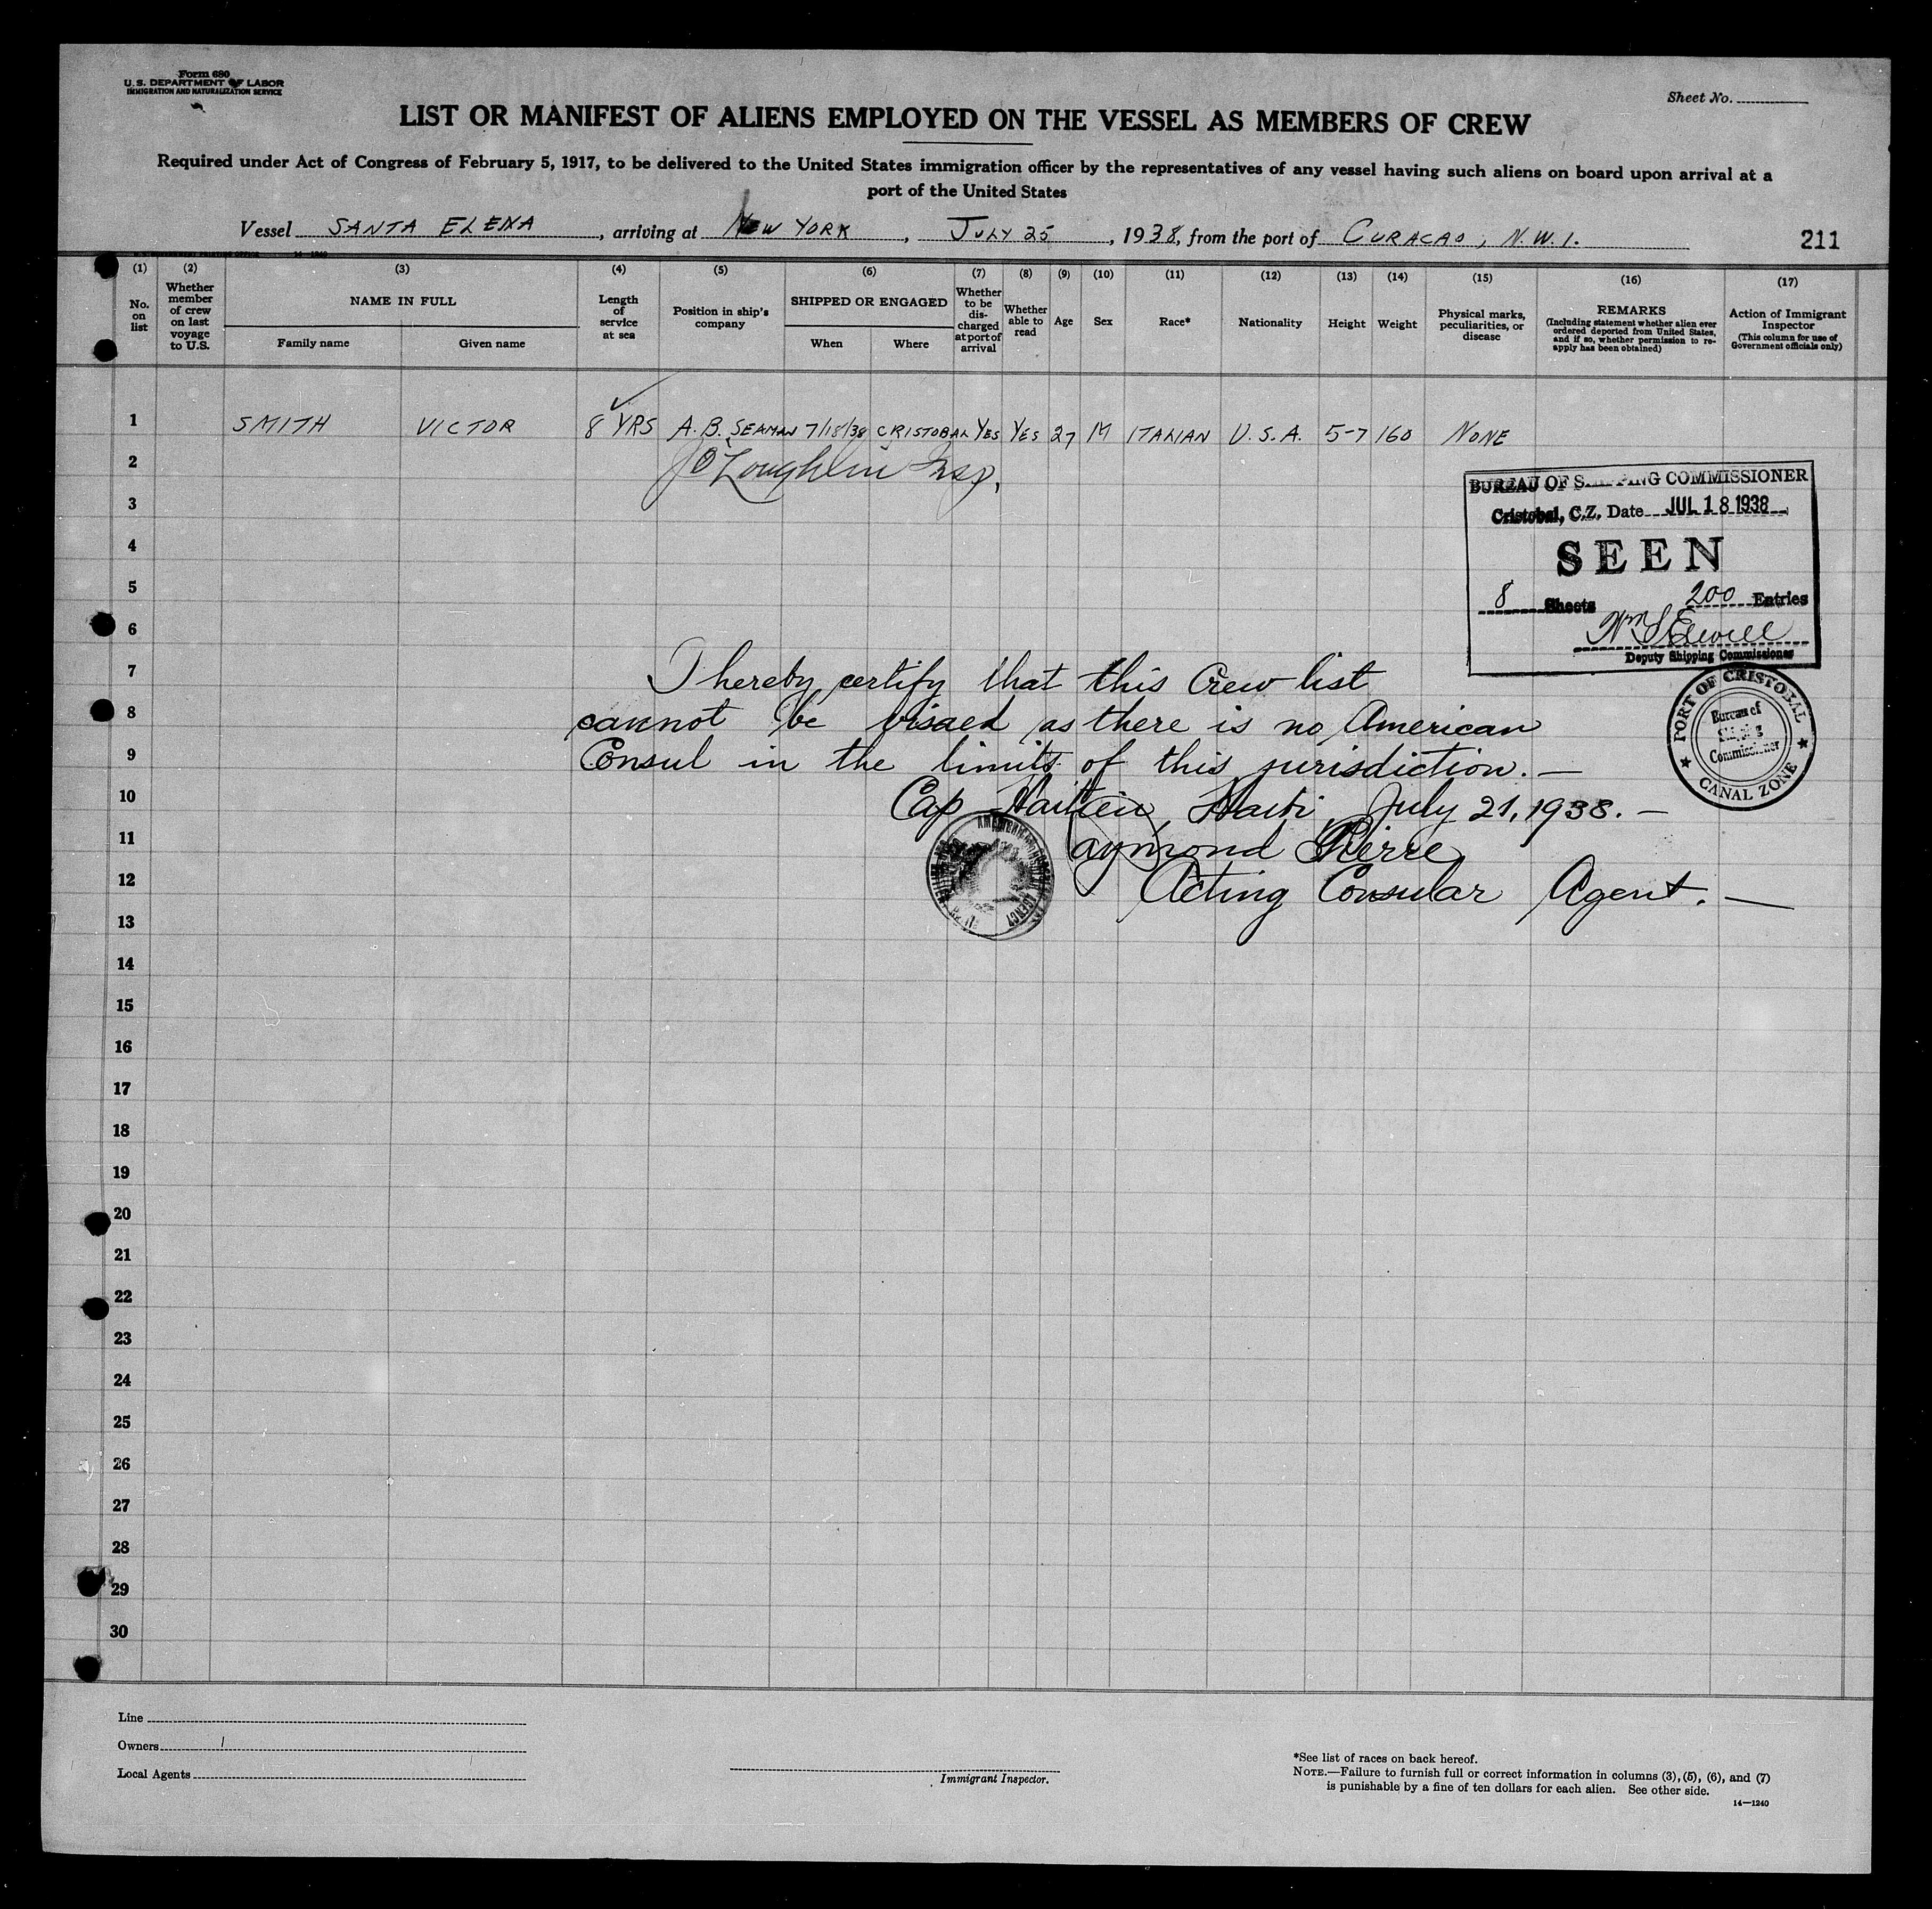 Form 680
U.S. DEPARTMENT OF LABOR
IMMIGRATION AND NATURALIZATION SERVICE
Sheet No.
LIST OR MANIFEST OF ALIENS EMPLOYED ON THE VESSEL AS MEMBERS OF CREW
Required under Act of Congress of February 5, 1917, to be delivered to the United States immigration officer by the representatives of any vessel having such aliens on board upon arrival at a
port of the United States
Vessel SANTA ELENA, arriving at NEW YORK, JULY 25, 1938, from the port of CURACAO, N.W.I. 211
(1) (2) (3) (4) (5) (6) (7) (8) (9) (10) (11) (12) (13) (14) (15) (16) (17)
No. on list
Whether member of crew on last voyage to U.S.
NAME IN FULL
Family name
Given name
Length of service at sea
Position in ship's company
SHIPPED OR ENGAGED
When
Where
Whether to be discharged at port of arrival
Whether able to read
Age
Sex
Race*
Nationality
Height
Weight
Physical marks, peculiarities, or disease
REMARKS
(Including statement whether alien ever ordered deported from United States, and if so, whether permission to reapply has been obtained)
Action of Immigrant Inspector
(This column for use of Government officials only)
1 SMITH VICTOR 8 YRS A.B. SEAMAN 7/18/38 CRISTOBAL YES YES 27 M ITALIAN U.S.A. 5-7 160 NONE
2 O'Loughlin Insp.
3
4
5
6
7
8
9
10
11
12
13
14
15
16
17
18
19
20
21
22
23
24
25
26
27
28
29
30
BUREAU OF SHIPPING COMMISSIONER
Cristobal, C.Z. Date JUL 18 1938
SEEN
8 Sheets 200 Entries
Deputy Shipping Commissioner
PORT OF CRISTOBAL
Bureau of
Shipping
Commissioner
CANAL ZONE
I hereby certify that this Crew list
cannot be visaed as there is no American
Consul in the limits of this jurisdiction.—
Cap Haitien, Haiti, July 21, 1938.—
Raymond Pierre
Acting Consular Agent.—
Line
Owners
Local Agents
Immigrant Inspector.
*See list of races on back hereof.
NOTE.—Failure to furnish full or correct information in columns (3), (5), (6), and (7)
is punishable by a fine of ten dollars for each alien. See other side.
14—1240